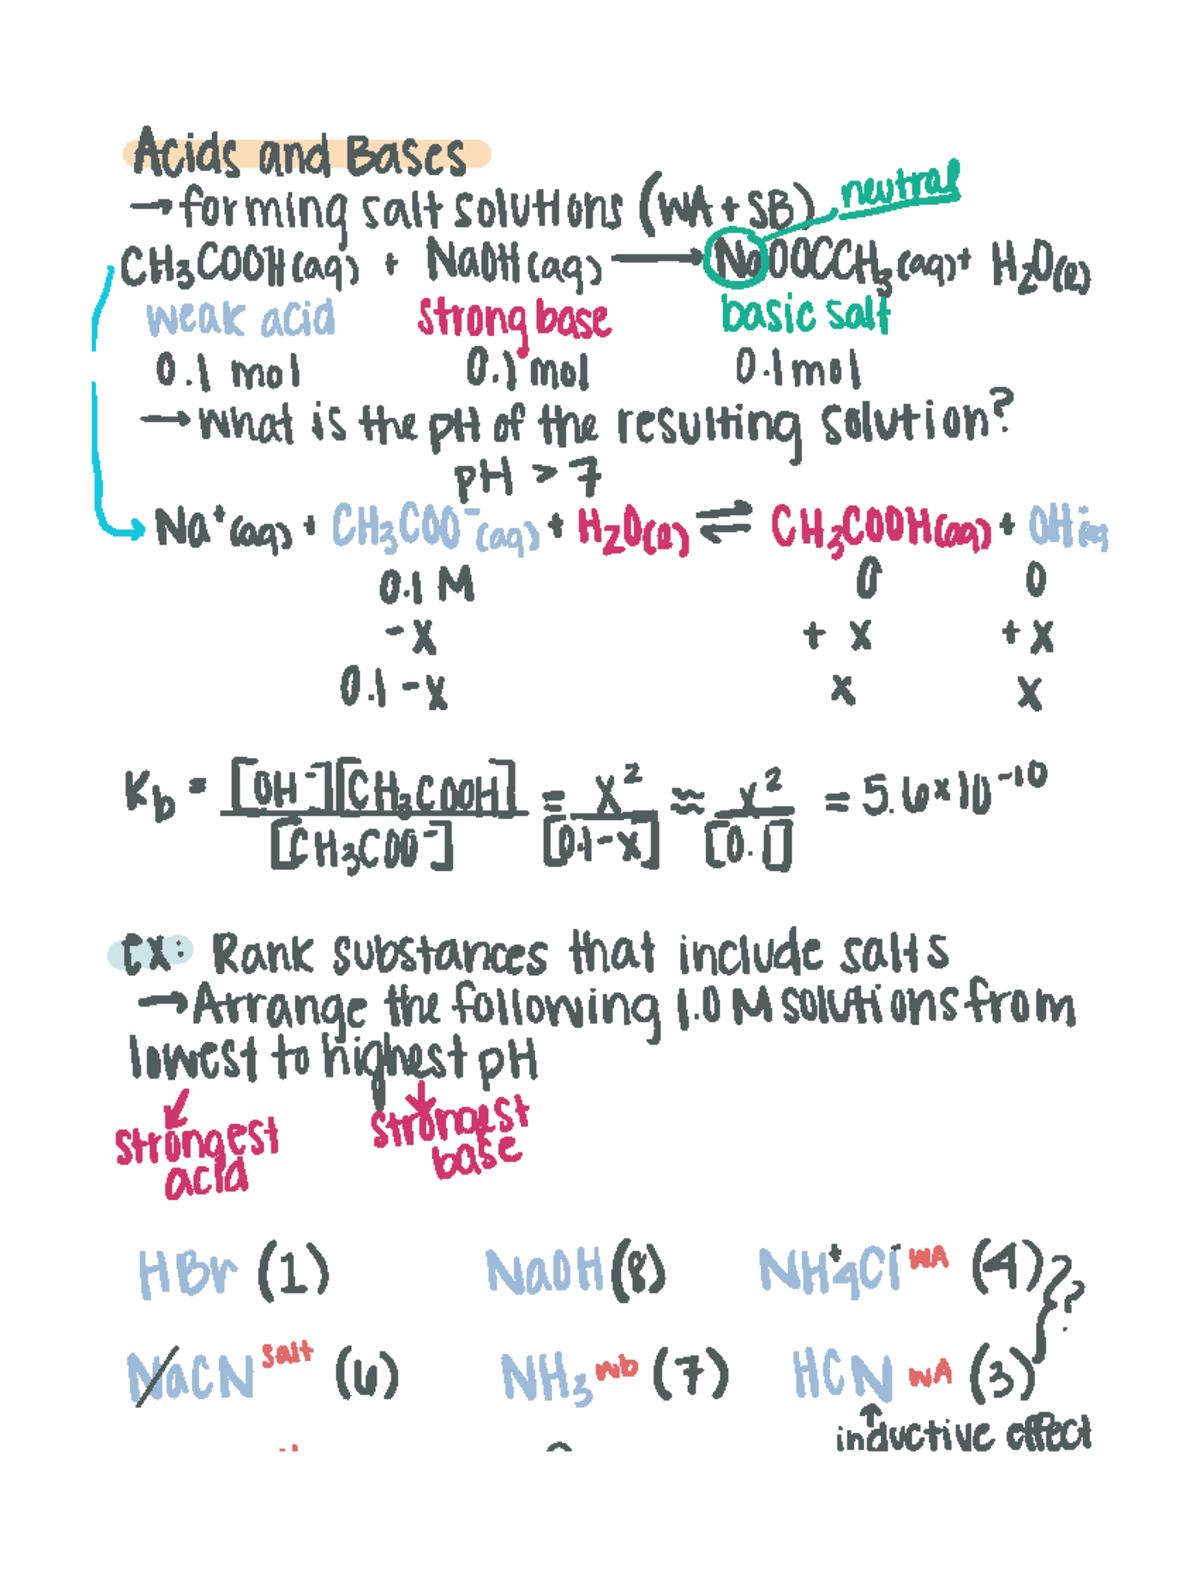 Acids and Bases
→ forming salt solutions (WA + SB) neutral
CH₃COOH(aq) + NaOH(aq) ⟶ NaOOCCH₃(aq) + H₂O(l)
weak acid strong base basic salt
0.1 mol 0.1 mol 0.1 mol
→ What is the pH of the resulting solution?
pH > 7
Na⁺(aq) + CH₃COO⁻(aq) + H₂O(l) ⇌ CH₃COOH(aq) + OH⁻(aq)
0.1 M 0 0
-x + x + x
0.1 - x x x
Kb = [OH⁻][CH₃COOH] / [CH₃COO⁻] = x² / [0.1-x] ≈ x² / [0.1] = 5.6 × 10⁻¹⁰
EX: Rank substances that include salts
→ Arrange the following 1.0 M solutions from
lowest to highest pH
strongest acid strongest base
HBr (1) NaOH (8) NH₄⁺Cl⁻ WA (4) ??
NaCN salt (6) NH₃ wb (7) HCN WA (3)
inductive effect